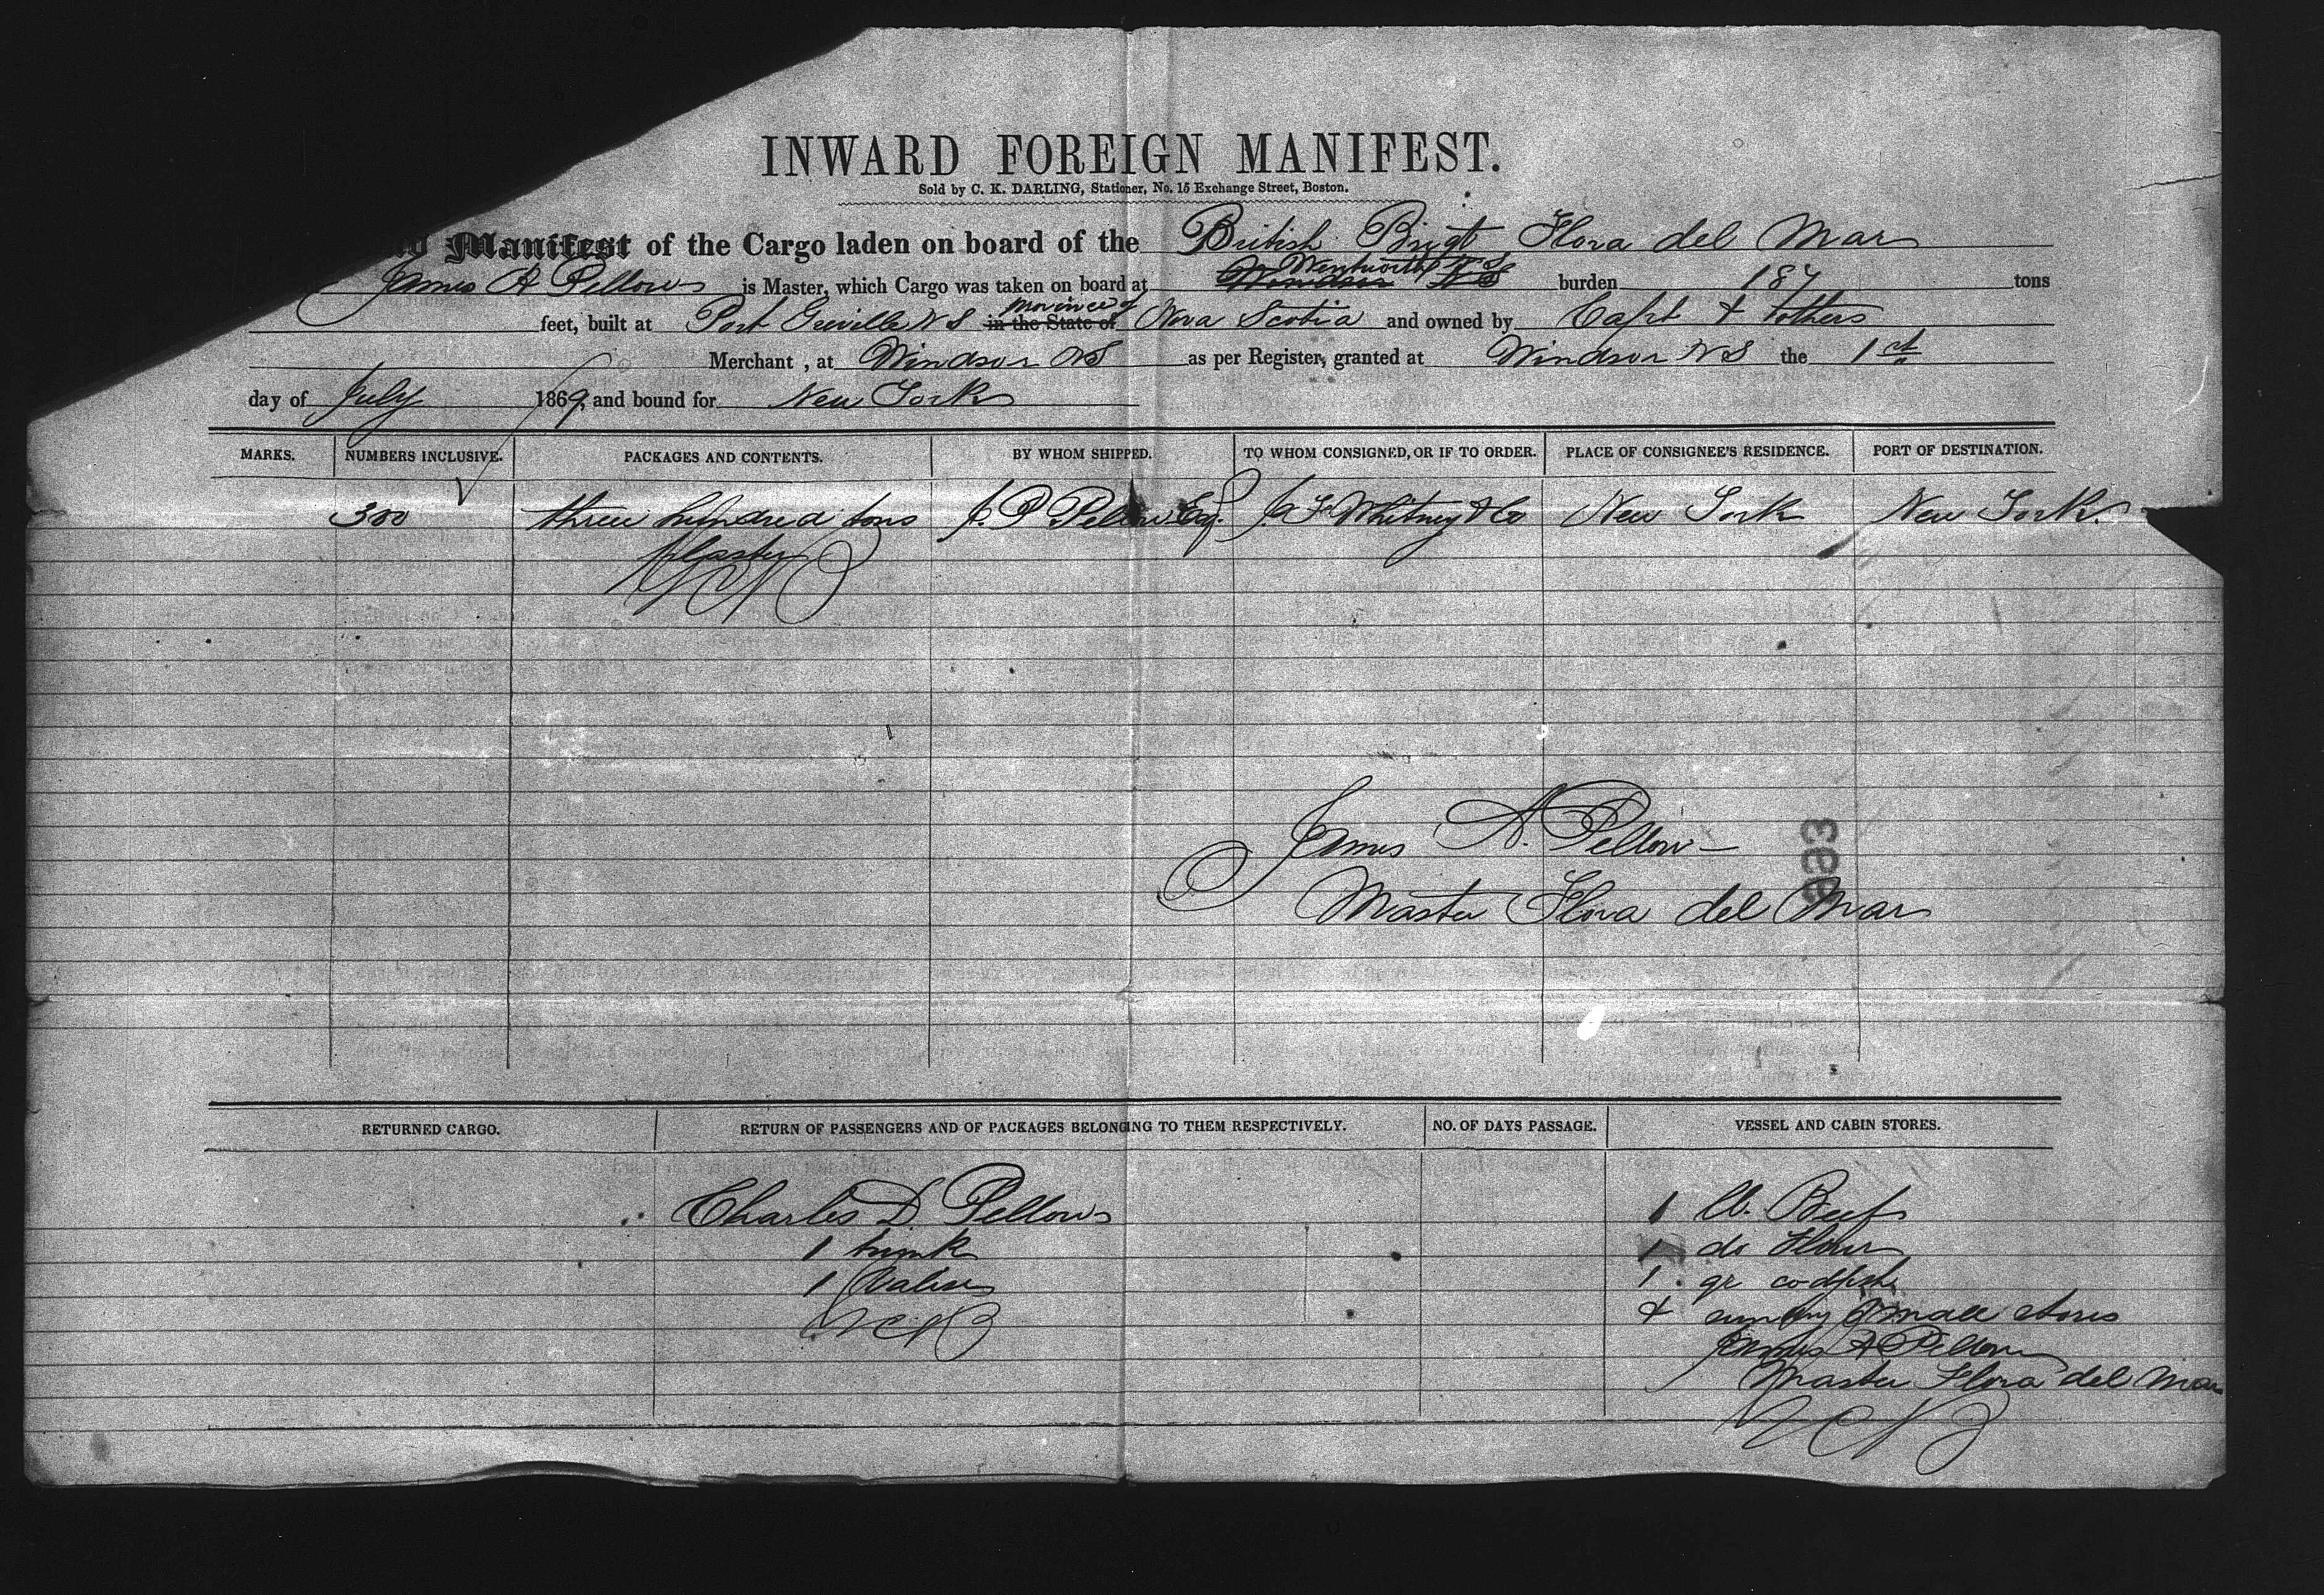 INWARD FOREIGN MANIFEST.
Sold by C. K. DARLING, Stationer, No. 15 Exchange Street, Boston.
Manifest of the Cargo laden on board of the British Brigt Flora del Mar
James A Pellow is Master, which Cargo was taken on board at Wentworth N S Windsor N S burden 187 tons
feet, built at Port Greville N S in the State of Province of Nova Scotia and owned by Capt & others
Merchant, at Windsor NS as per Register, granted at Windsor N S the 1st
day of July 1869, and bound for New York
MARKS. NUMBERS INCLUSIVE. PACKAGES AND CONTENTS. BY WHOM SHIPPED. TO WHOM CONSIGNED, OR IF TO ORDER. PLACE OF CONSIGNEE'S RESIDENCE. PORT OF DESTINATION.
300 three hundred tons J. P Pellow Esq. J. F Whitney & Co New York New York.
plaster
James A. Pellow
Master Flora del Mar
993
RETURNED CARGO. RETURN OF PASSENGERS AND OF PACKAGES BELONGING TO THEM RESPECTIVELY. NO. OF DAYS PASSAGE. VESSEL AND CABIN STORES.
Charles D. Pellow 1 bl. Beef
1 trunk 1 do Flour
1 Valise 1 qr codfish
& sundry small stores
James A Pellow
Master Flora del Mar